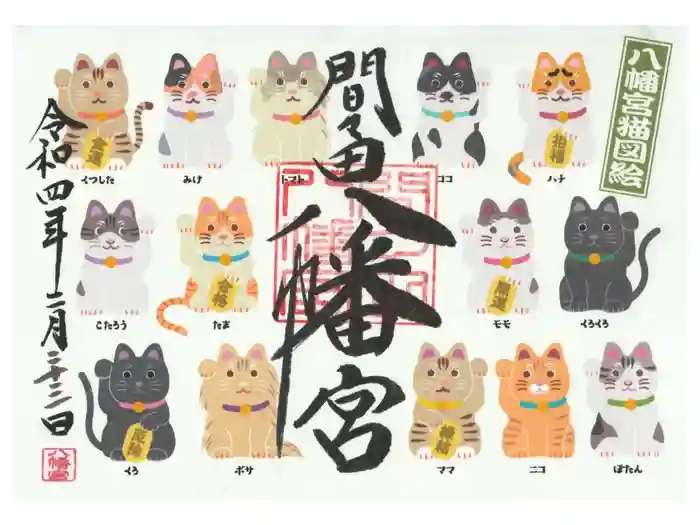 八幡宮猫図絵
間々田八幡宮
令和四年二月二十二日
八幡宮
金運
くつした
みけ
トマト
ココ
招福
ハナ
こたろう
合格
たま
開運
モモ
くろくろ
厄除
くろ
ボサ
ママ
ニコ
ぼたん